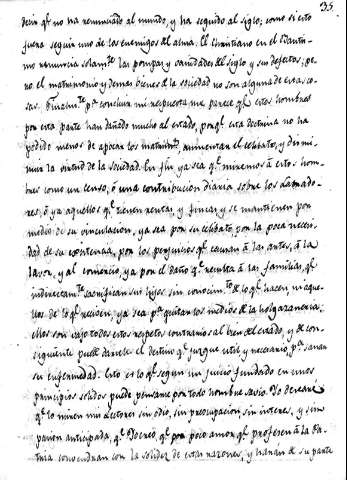 35
decir q.e no ha renunciado al mundo, y ha seguido al siglo; como si esto
fuera seguir uno de los enemigos del alma. El Christiano en el Bautis-
mo renuncia solam.te las pompas y vanidades del siglo y sus defectos; pe-
ro el matrimonio y demas bienes de la sociedad no son alguna de estas co-
sas. Finalm.te p.a concluir mi respuesta me parece q.e estos hombres
por esta parte han dañado mucho al estado, porq.e esta doctrina no ha
podido menos de apocar los matrim.s, aumentar el celibato, y dismi-
nuir la virtud de la sociedad. En fin ya sea q.e miremos a estos hom-
bres como un censo, ó una contribucion diaria sobre los Labrado-
res, ó ya aquellos q.e tienen rentas, y fincas, y se mantienen por
medio de su vinculacion, ya sea por su celibato, por la poca necesi-
dad de su existencia, por los perjuicios q.e causan á las artes, á la
labor, y al comercio, ya por el daño q.e resulta á las familias, q.e
indirectam.te sacrifican sus hijos sin conocim.to de lo q.e hacen, ni aque-
llos de lo q.e reciben, ya sea p.a quitar los medios de la holgazaneria:
ellos son vajo todos estos respetos contrarios al bien del estado, y de con-
siguiente puede darseles el destino q.e juzgue util, y necesario, p.a sanar
su enfermedad. Esto es lo q.e segun un juicio fundado en unos
principios solidos puede pensar todo hombre savio. Yo deseare
q.e lo miren mis Lectores sin odio, sin preocupacion, sin interes, y sin
pasion anticipada, q.e yo creo, q.e por poco amor q.e profesen á la Pa-
tria convendran con la solidez de estas razones, y haran de su parte